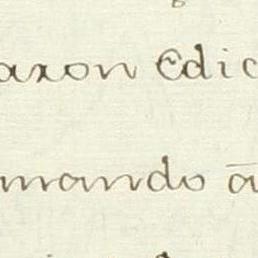 axon Edic
mando a